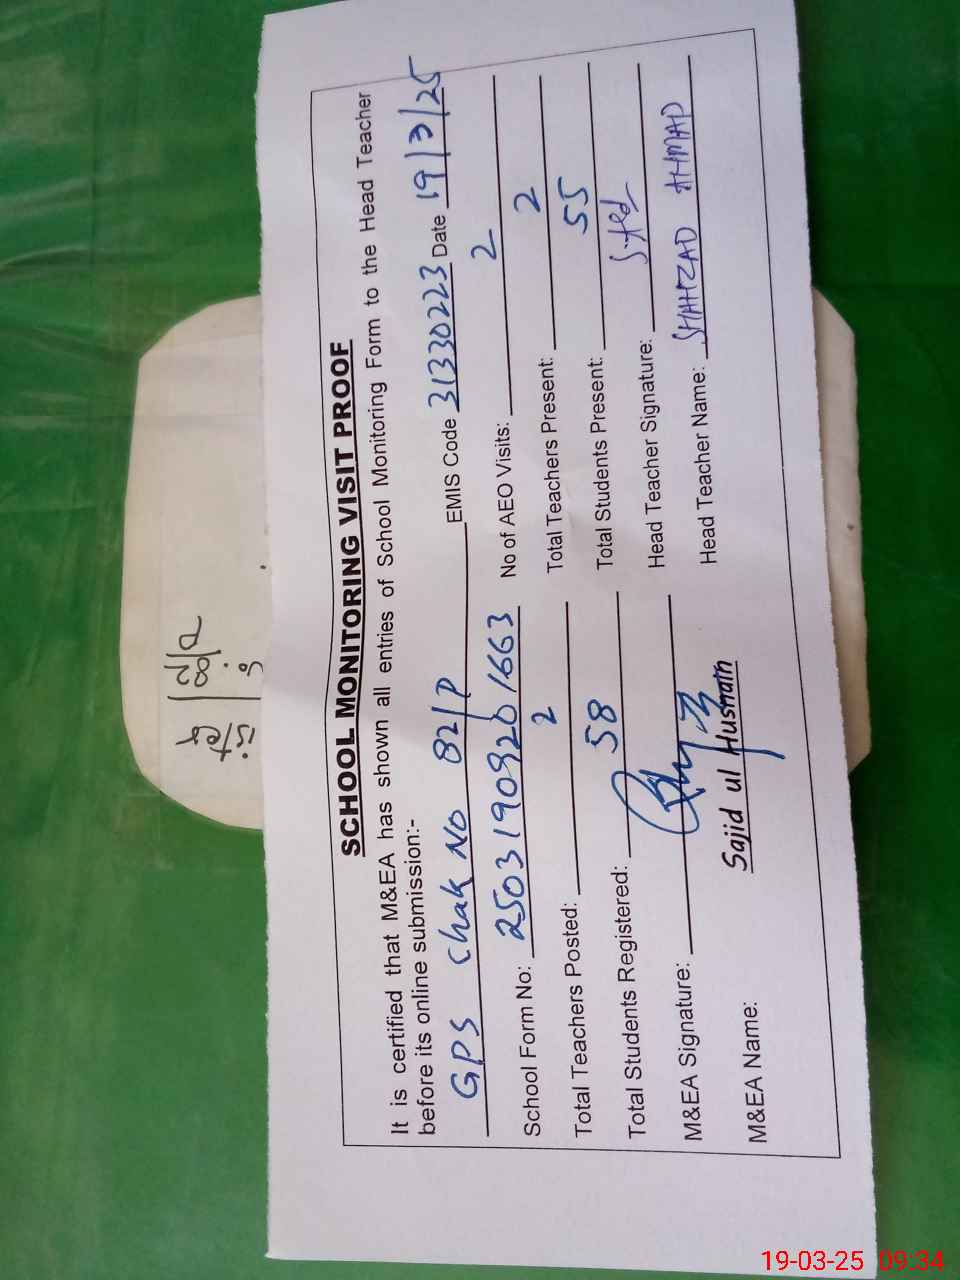 SCHOOL MONITORING VISIT PROOF
It is certified that M&EA has shown all entries of School Monitoring Form to the Head Teacher
before its online submission:-
GPS Chak No 82/P EMIS Code 31330223 Date 19/3/25
School Form No: 250319092601663 No of AEO Visits: 2
Total Teachers Posted: 2 Total Teachers Present: 2
Total Students Registered: 58 Total Students Present: 55
M&EA Signature: Head Teacher Signature:
M&EA Name: Sajid ul Husnain Head Teacher Name: SHAHZAD AHMAD
82/P
ister
19-03-25 09:34